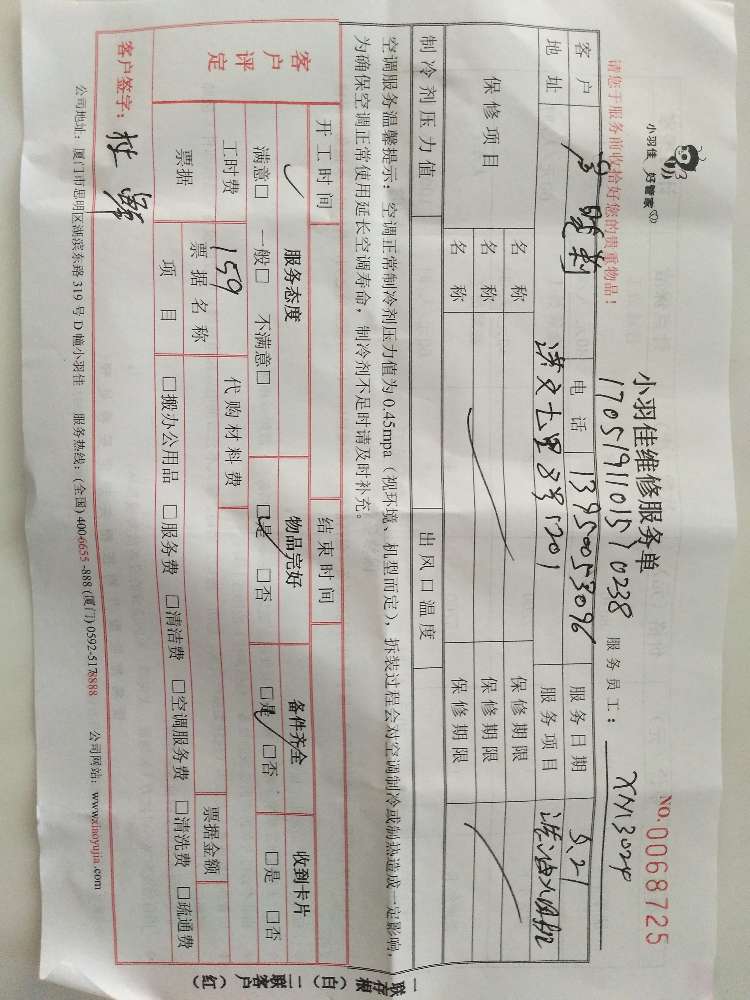 小羽佳 好管家
小羽佳维修服务单
NO. 0068725
1705191101590238
服务员工: XM13024
请您于服务前收拾好您的贵重物品!
客户 电话 13950053096 服务日期 5.21
地址 洪文七里 服务项目
保修项目 名称 保修期限
名称 保修期限
名称 保修期限
制冷剂压力值 出风口温度
空调服务温馨提示:空调正常制冷剂压力值为0.45mpa(视环境、机型而定),拆装过程会对空调制冷或制热造成一定影响,
为确保空调正常使用延长空调寿命,制冷剂不足时请及时补充。
开工时间 结束时间
客户评定 服务态度 物品完好 备件齐全 收到卡片
满意□ 一般□ 不满意□ □是 □否 □是 □否 □是 □否
工时费 159 代购材料费
票据 票据名称 票据金额
项目 □搬办公用品 □服务费 □清洁费 □空调服务费 □清洗费 □疏通费
客户签字:
公司地址:厦门市思明区湖滨东路319号D幢小羽佳 服务热线:(全国)4006655-888(厦门)0592-5178888 公司网站:www.xiaoyujia.com
一联存根(白) 二联客户(红)